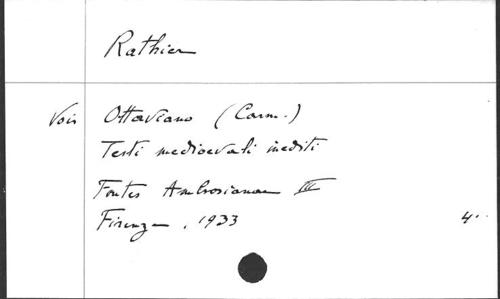 Rathier
Vois Ottaviano (Carm.)
Testi medioevali inediti
Fontes Ambrosianae III
Firenze, 1933 4°